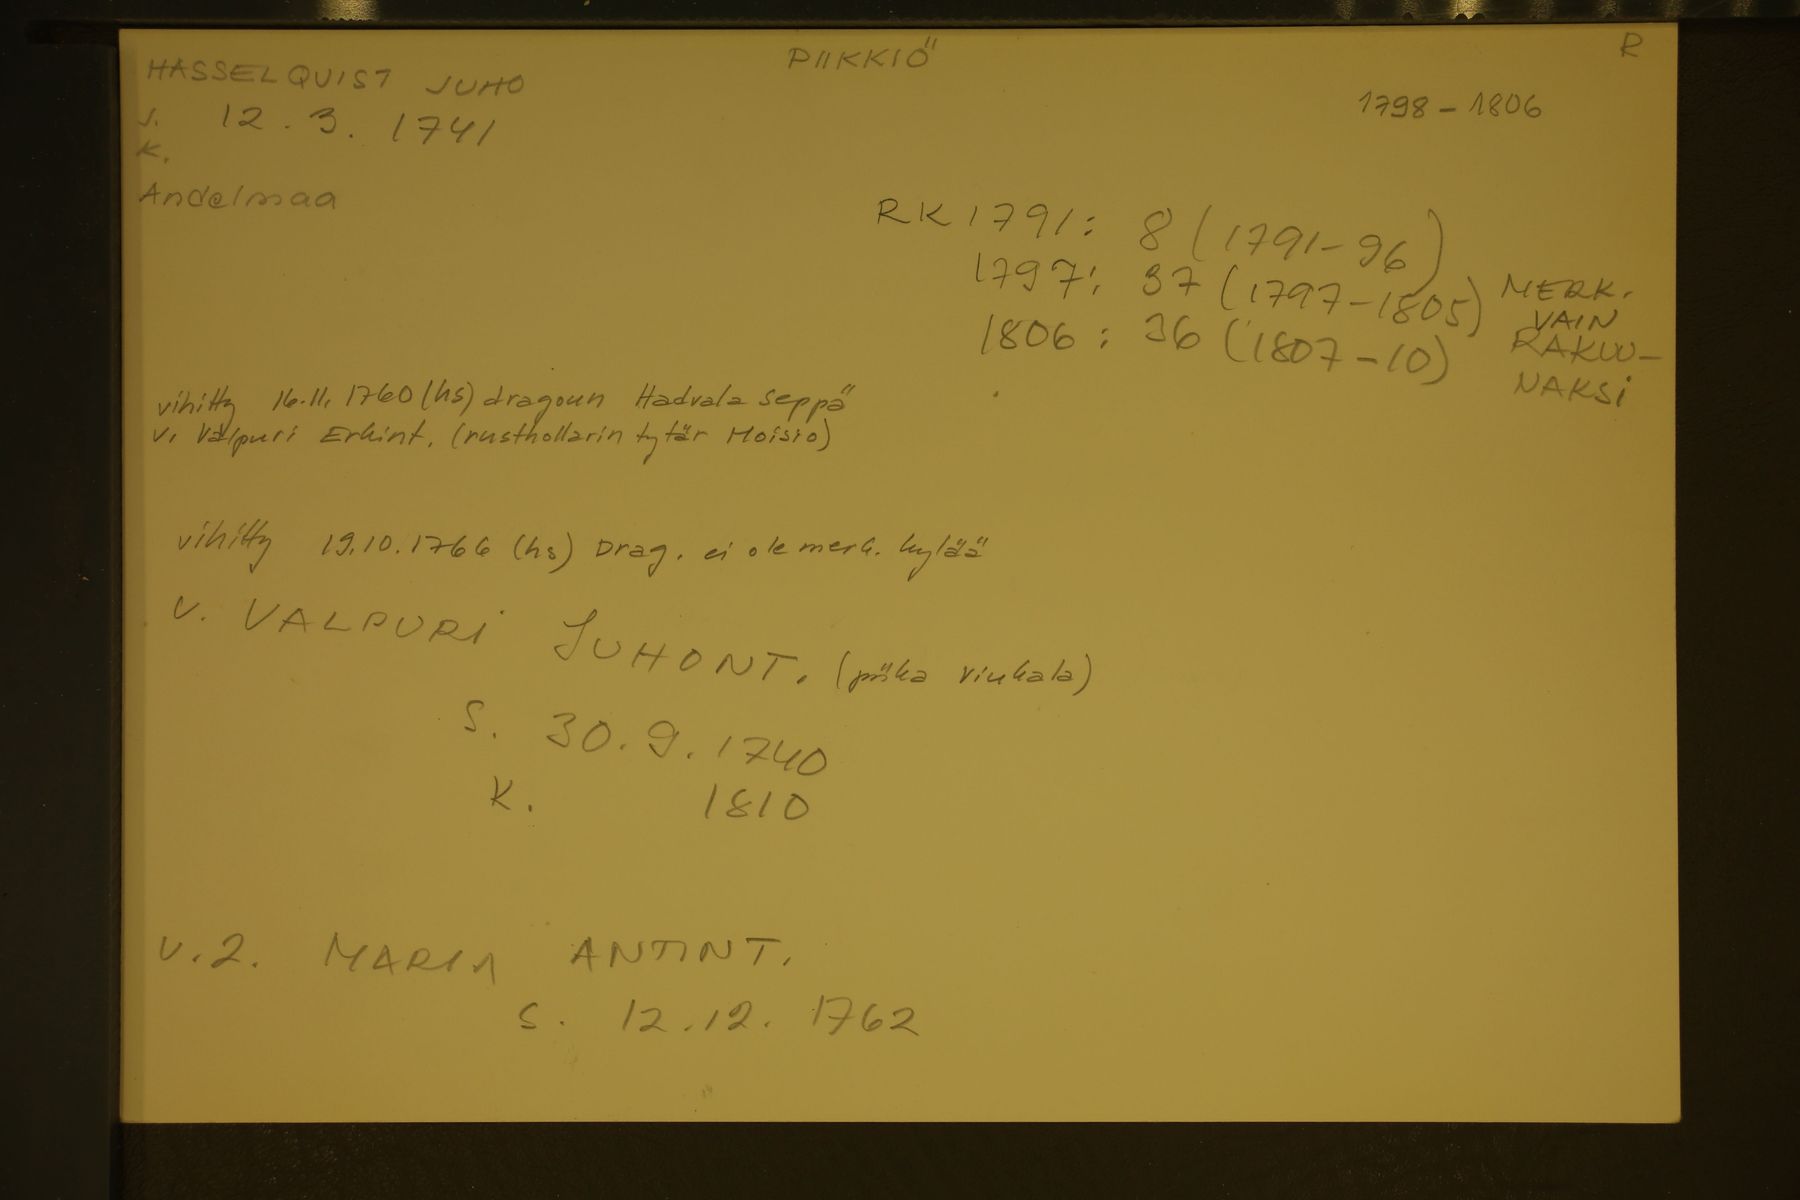 HASSELQUIST JUHO
PIIKKIÖ
R
S. 12.3. 1741
1798-1806
K.
Andelmaa
RK 1791: 8 (1791-96)
1797: 37 (1797-1805)
1806: 36 (1807-10)
MERK.
VAIN
RAKUU-
NAKSI
vihitty 16.11. 1760 (hs) dragoun Hadvala seppä
v. Valpuri Erkint. (rusthollarin tytär Moisio)
vihitty 19.10.1766 (hs) Drag. ei ole merk. kylää
V. VALPURI JUHONT. (piika Viukala)
S. 30.9.1740
K. 1810
V.2. MARIA ANTINT.
S. 12.12. 1762